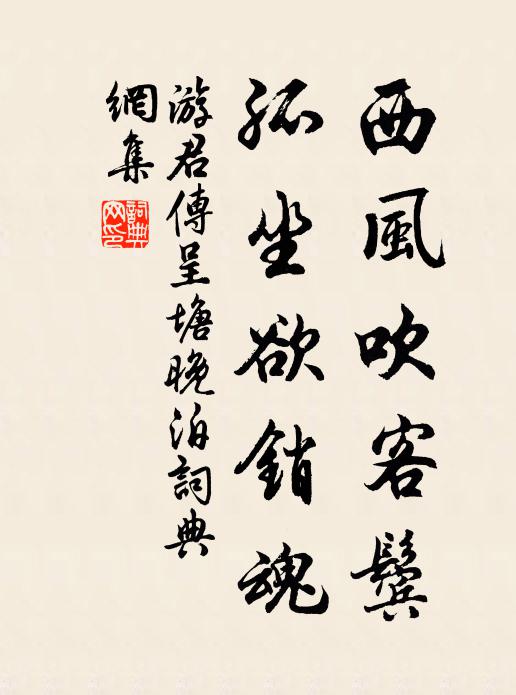 西風吹客鬓
孤坐欲銷魂
游君傳呈塘晚泊詞典
網集
詞典網印